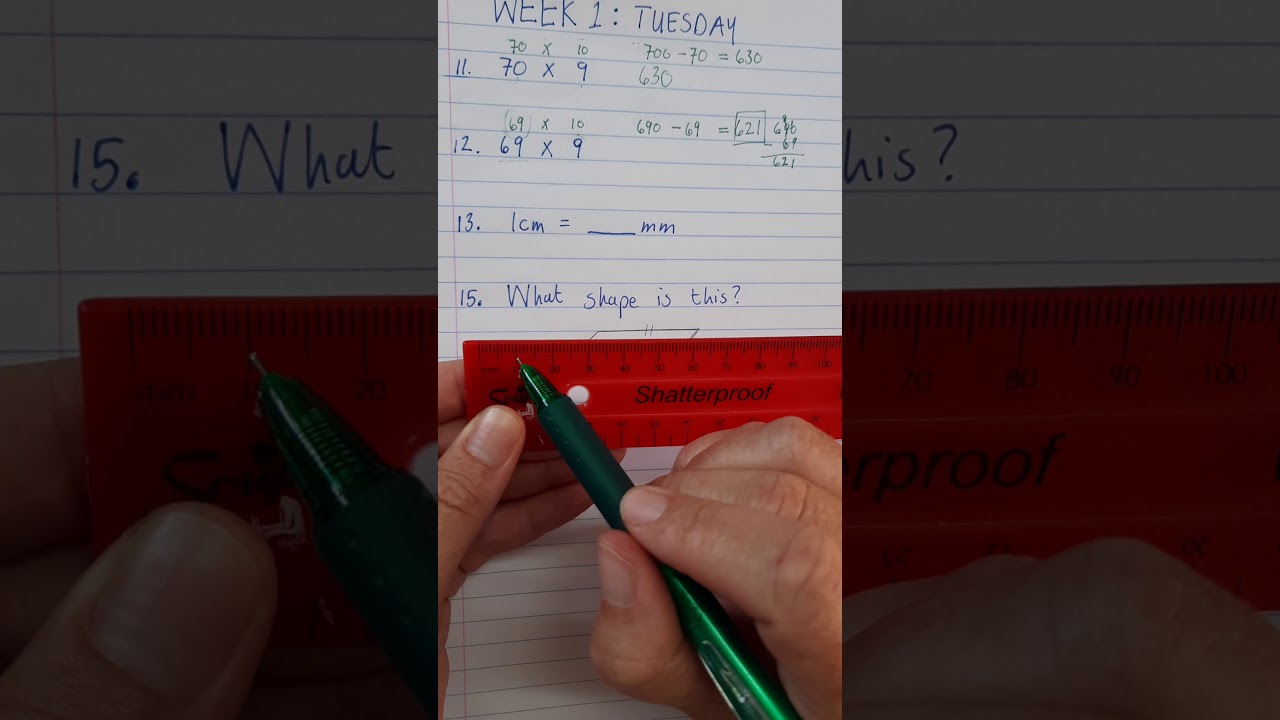 WEEK 1 : TUESDAY
70 x 10 700 - 70 = 630
11. 70 x 9 630
(69) x 10 690 - 69 = 621 690
12. 69 x 9 69
621
13. 1cm = ____ mm
15. What shape is this?
mm 20 30 40 50 60 70 80 90 100
Shatterproof
15. What
his?
mm 20
70 80 90 100
erproof